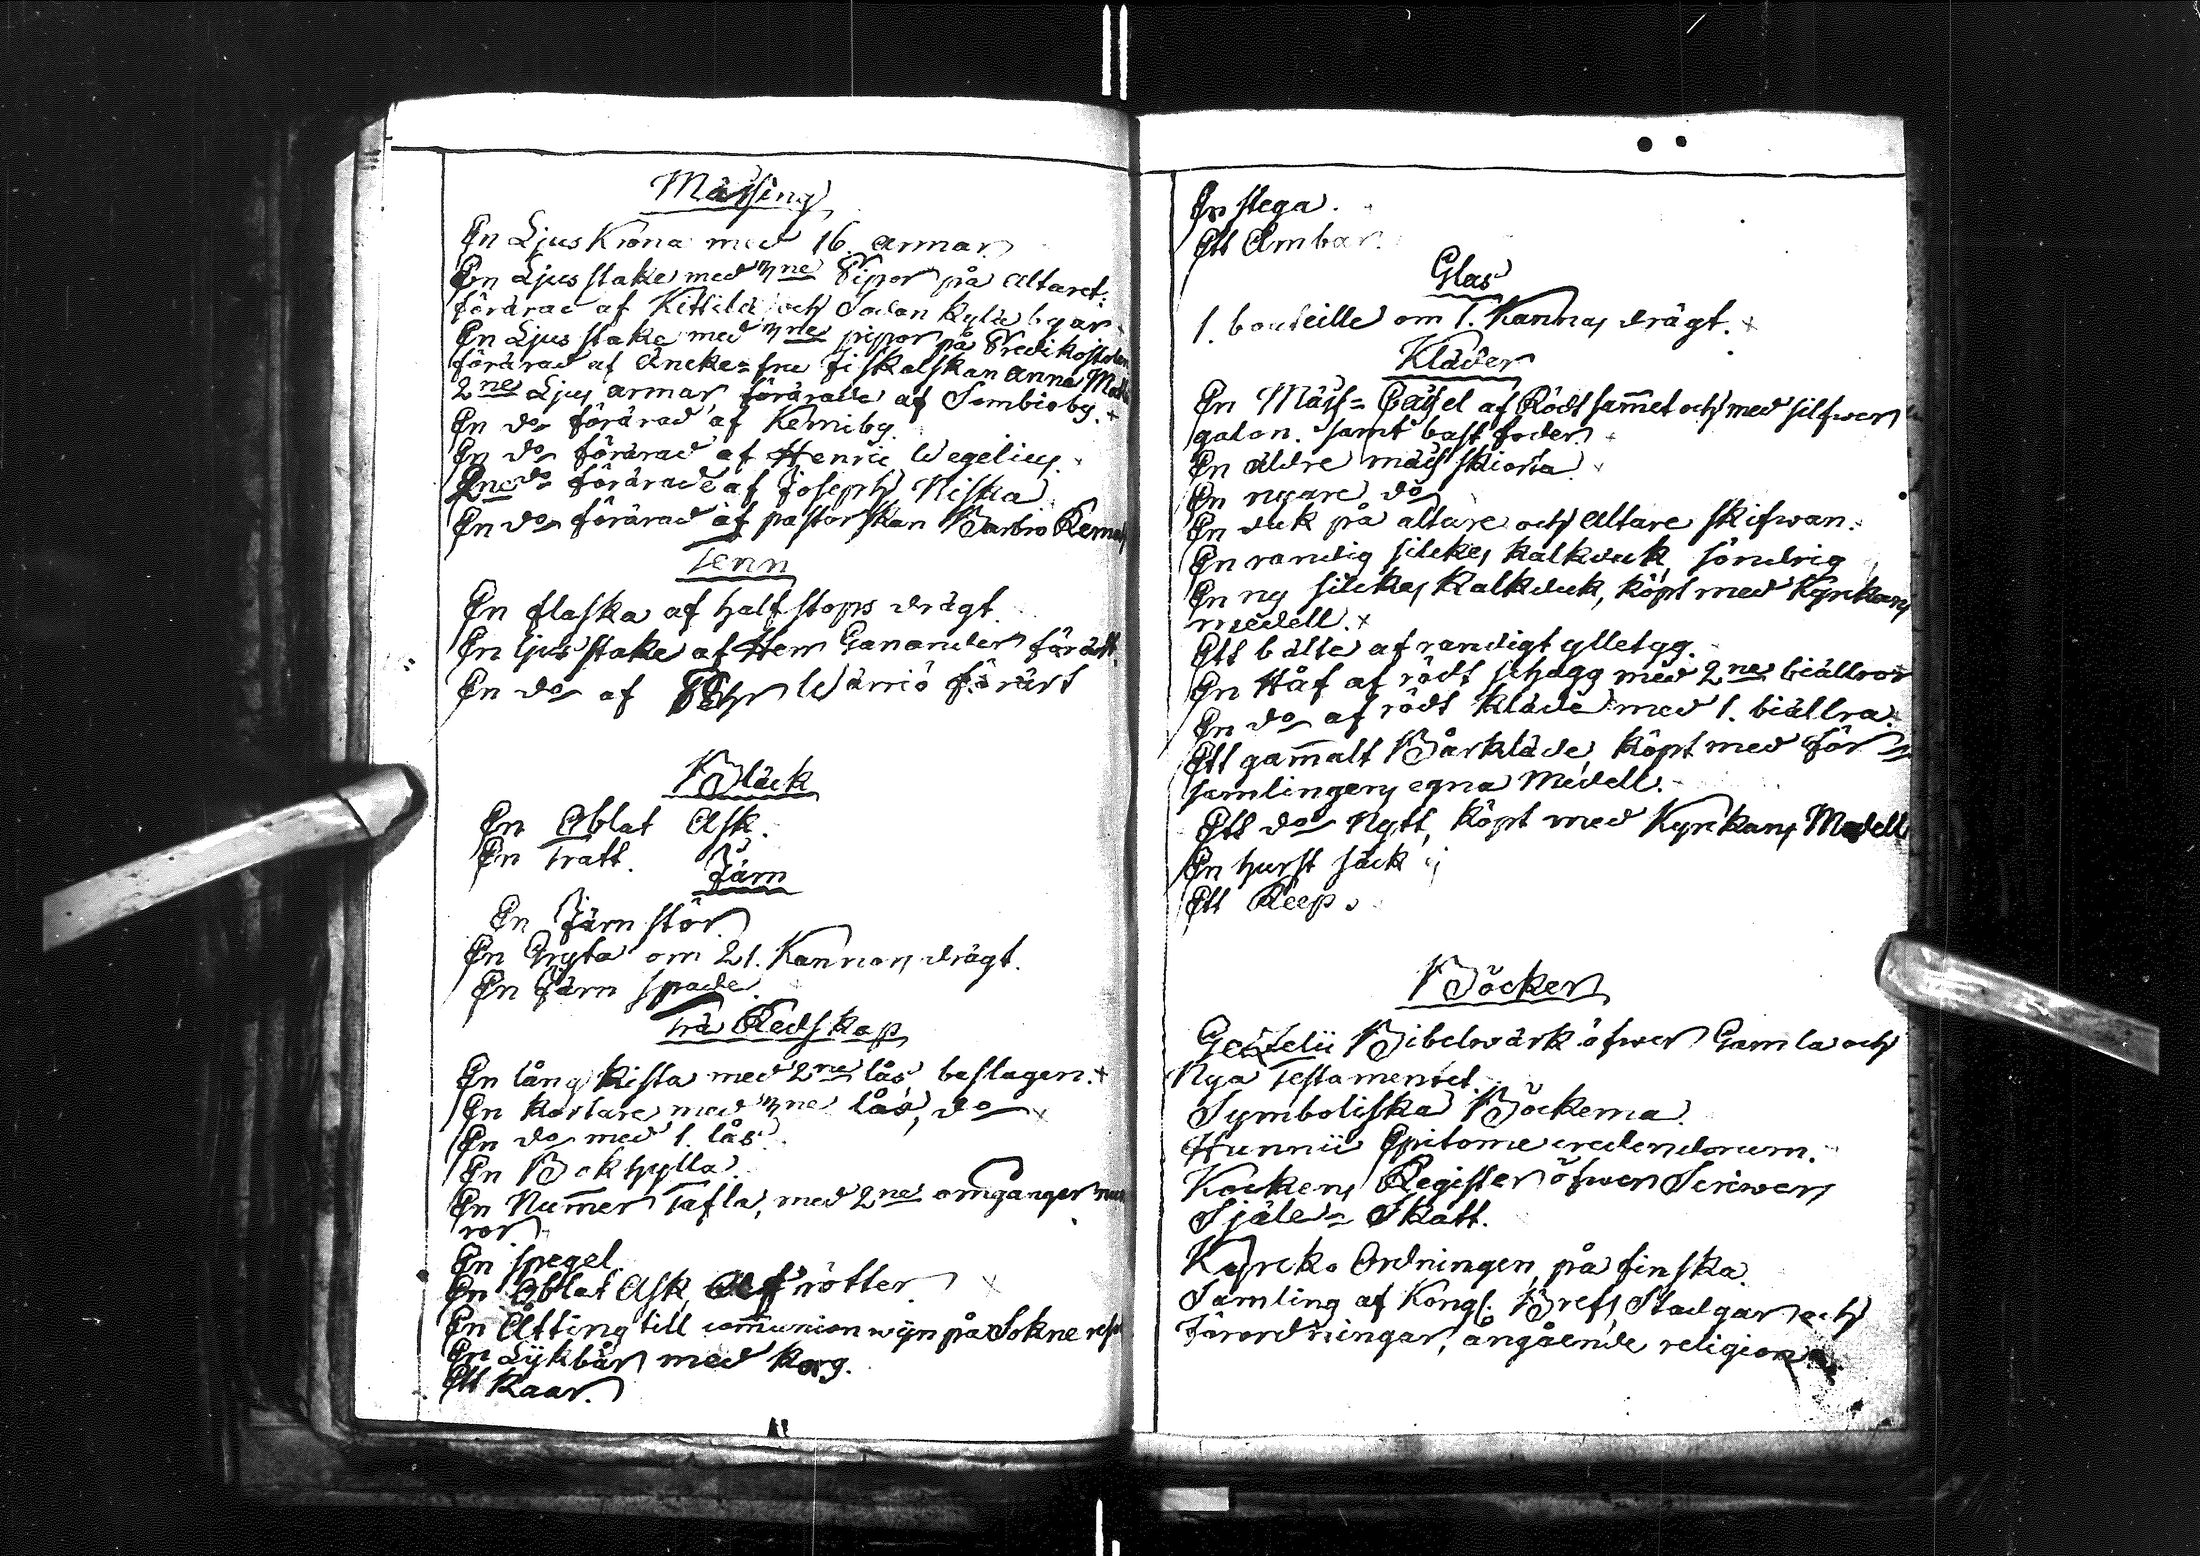 Mässing
En Ljus Krona med 16. armar.
En Ljusstake med 3ne Pipor på Altaret:
förärad af Kittilä och Sodan kylä byar
En Ljus stake med 3ne pipor på Predikostolen
förärad af Äncke=fru Fiskalskan Anna
2ne Ljus armar förärade af Sombioby.
En do förärad af Kemiby.
En do förärad af Henric Wegelius.
2ne do förärade af Joseph Niska
En do förärad af pastorskan Barbro
Tenn
En flaska af half stops drägt
En ljus stake af Herr Ganander förärt.
En do af Wärriö förärt
Bläck
En Oblat Ask.
En Tratt.
Järn
En Järn stör.
En Gryta om 21. Kannors drägt.
En Järn spade
Trä Redskap
En lång kista med 2ne lås, beslagen.
En kortare med 3ne lås, do
En do med 1. lås
En Bokhylla.
En Nummer Tafla, med 2ne omgånger
ror
En spegel
En Oblat Ask Af rötter
En Åtting till communion wijn på Sokne
En Lijkbår med korg.
Ett Kaar.
En stega.
Ett Ämbar.
Glas
1. bouteille om 1. Kannas drägt.
Kläder
En Mäss= af Rödt sammet och med silfwer
galon. samt bast foder
En äldre mäss skiorta
En nyare do
En duk på altare och Altare skifwan.
En randig silckes kalkduk, söndrig
En ny silckes Kalkduk, köpt med Kyrkans
medell.
Ett bälte af randigt ylletyg.
En Håf af rödt schagg med 2ne biällror
En do af rödt kläde med 1. biällra.
Ett gammalt Bårkläde, köpt med för
samlingens egna Medell.
Ett do Nytt, köpt med Kyrkans Medell
En hurst säck
Ett Reep.
Böcker
Gezelii Bibelwärk öfwer Gamla och
Nya Testamentet.
Symboliska Böckerna
Hunnii Epitome credendorum.
Kockens Register öfwer Scriwers
Själe= Skatt.
Kyrcko Ordningen på finska
Samling af Kongl. Bref, Stadgar och
Förordningar, angående religion